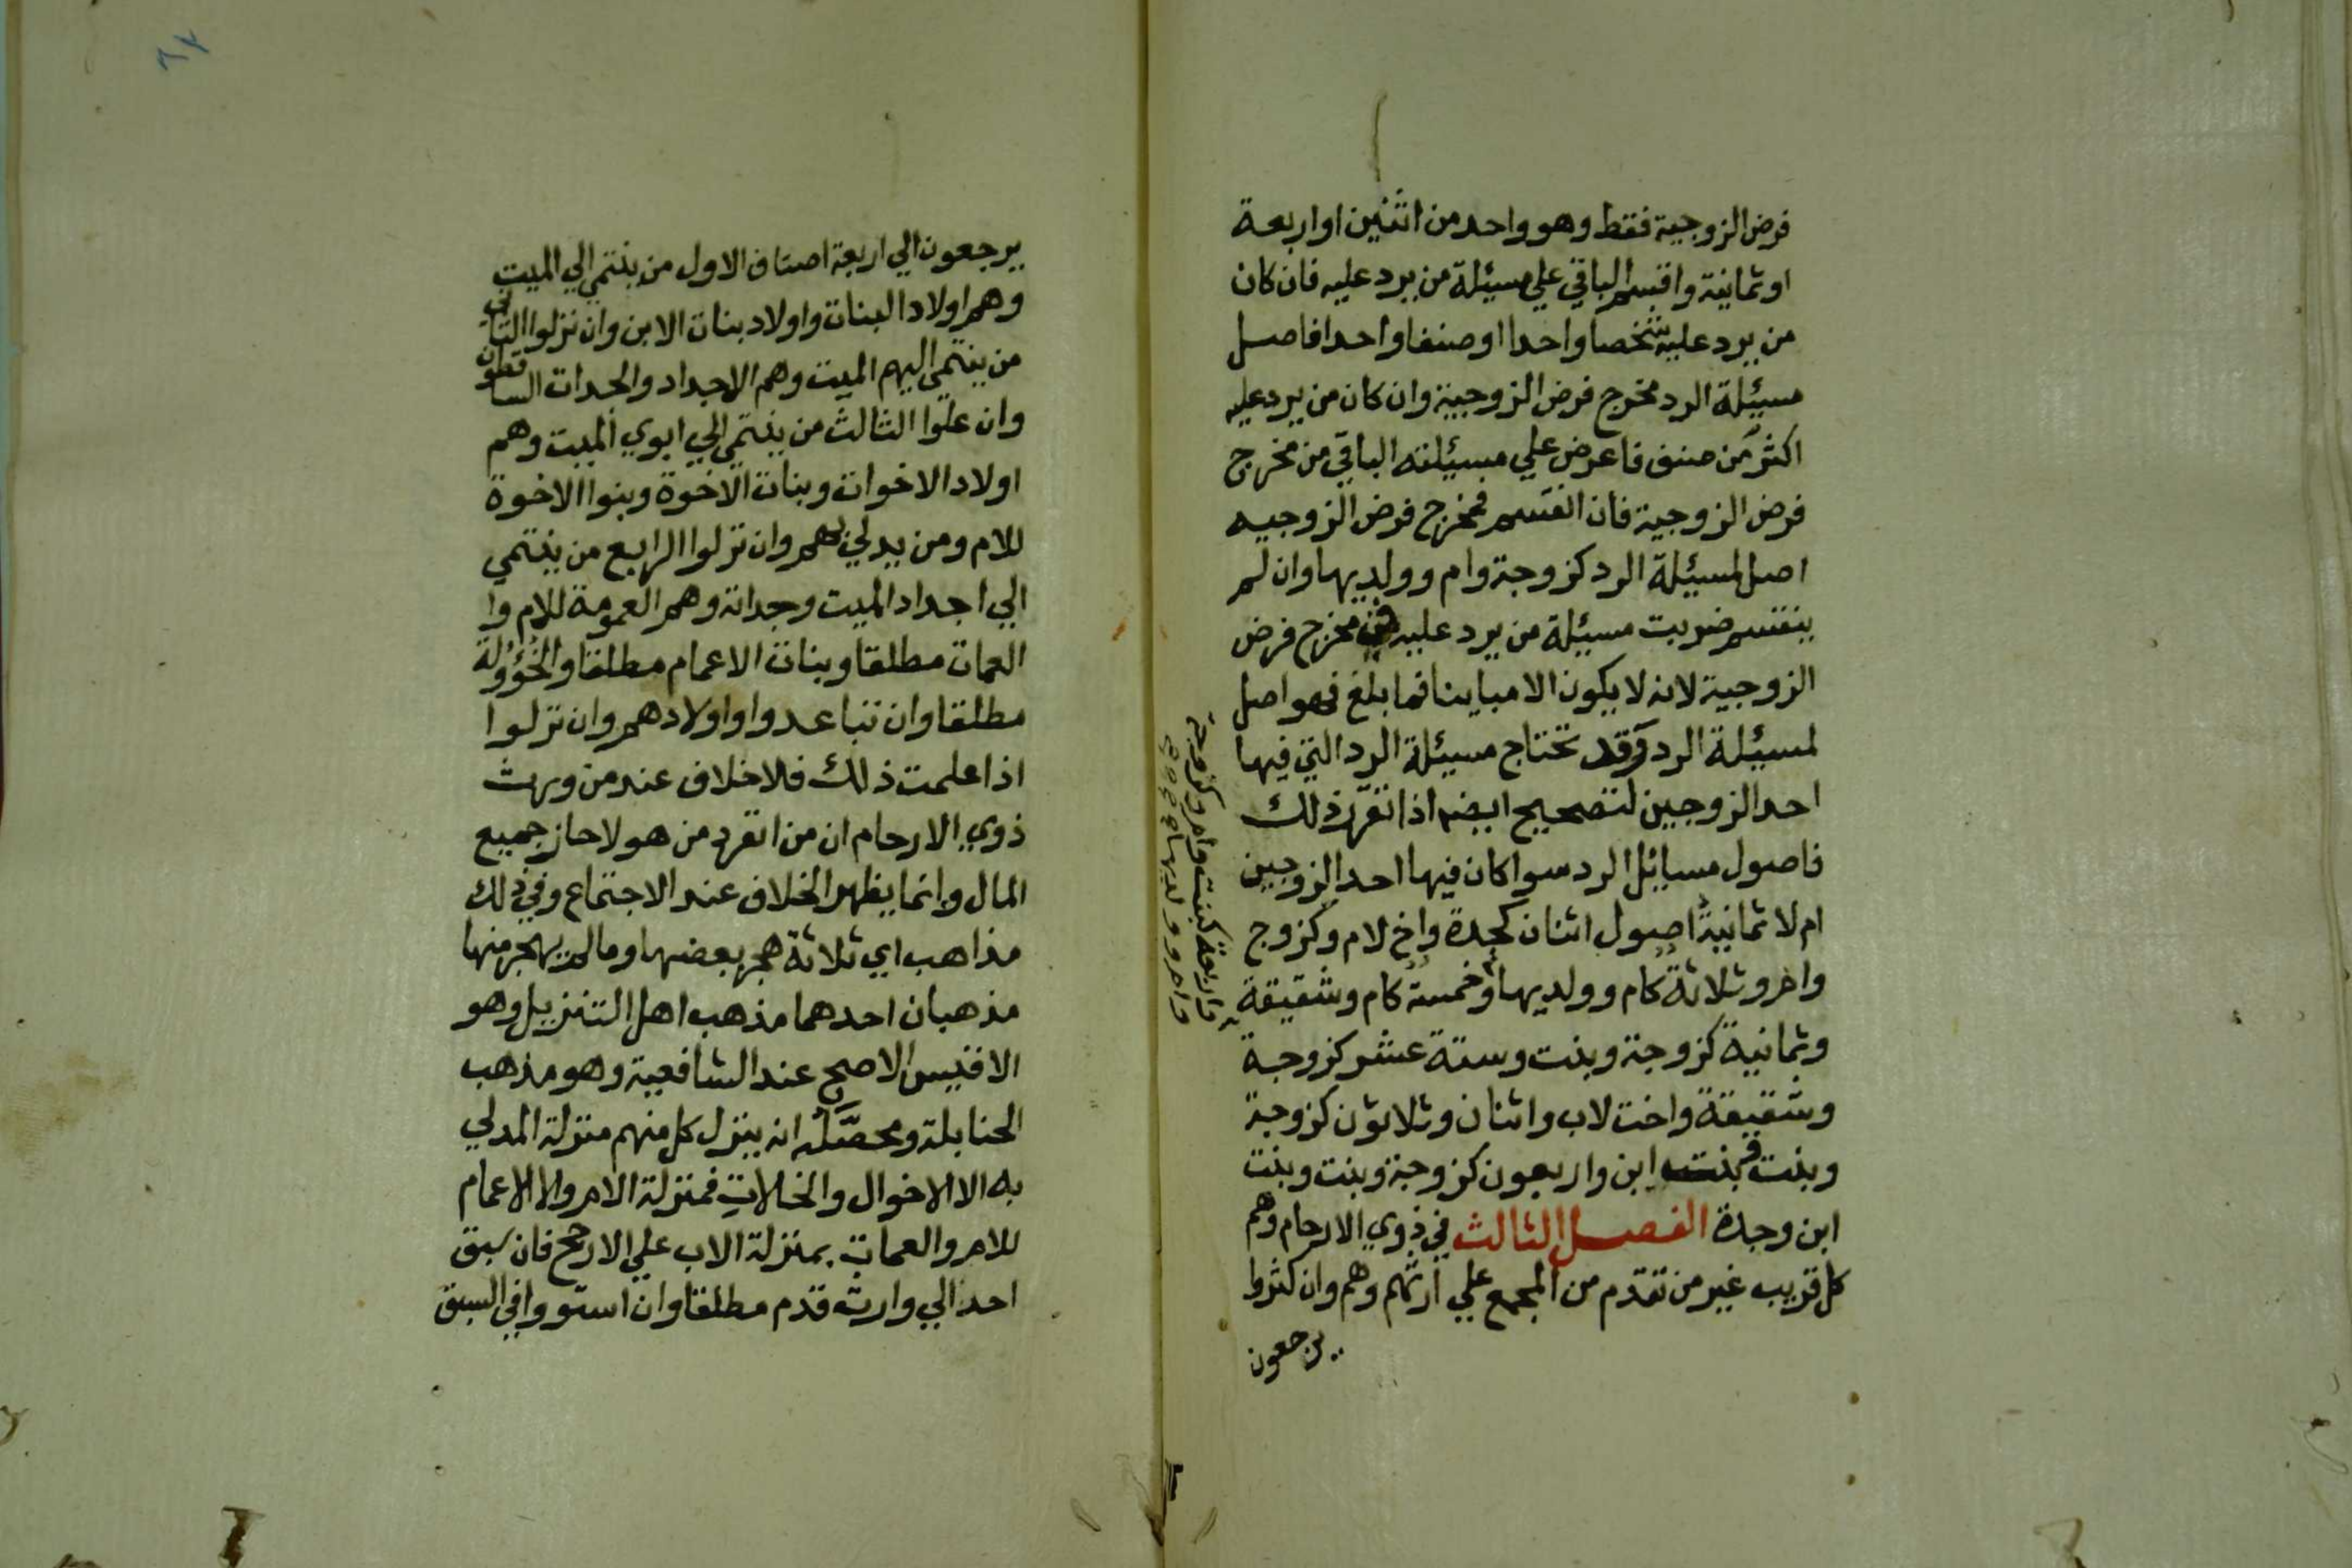 فرض الزوجية فقط وهو واحد من اثنين او اربعة
او ثمانية واقسم الباقي علي مسيئلة من يرد عليه فان كان
من يرد عليه شخصا واحدا او صنفا واحدا فاصل
مسيئلة الرد مخرج فرض الزوجية وان كان من يرد عليه
اكثر من صنف فاعرض علي مسيئلته الباقي من مخرج
فرض الزوجية فان انقسم فمخرج فرض الزوجيه
اصل لمسيئلة الرد كزوجة وام وولديها وان لم
ينقسم ضربت مسيئلة من يرد عليه في مخرج فرض
الزوجية لانه لا يكون الا مباينا فما بلغ فهو اصل
لمسيئلة الرد وقد تحتاج مسيئلة الرد التي فيها
احد الزوجين لتصحيح ايضا اذا تقرر ذلك
فاصول مسايل الرد سوا كان فيها احد الزوجين
ام لا ثمانية اصول اثنان كجدة واخ لام وكزوج
وام وثلاثة كام وولديها وخمسة كام وشقيقة
وثمانية كزوجة وبنت وستة عشر كزوجة
وشقيقة واخت لاب واثنان وثلاثون كزوجة
وبنت وبنت ابن واربعون كزوجة وبنت وبنت
ابن وجدة الفصل الثالث في ذوي الارحام وهم
كل قريب غير من تقدم من المجمع علي ارثهم وهم وان كثروا
يرجعون
واربعة كبنت وام وكزوجة
وام وولديها
٨٣
يرجعون الي اربعة اصناف الاول من ينتمي الي الميت
وهم اولاد البنات واولاد بنات الابن وان نزلوا الثاني
من ينتمي اليهم الميت وهم الاجداد والجدات الساقطون
وان علوا الثالث من ينتمي الي ابوي الميت وهم
اولاد الاخوات وبنات الاخوة وبنوا الاخوة
للام ومن يدلي بهم وان نزلوا الرابع من ينتمي
الي اجداد الميت وجداته وهم العمومة للام وا
العمات مطلقا وبنات الاعمام مطلقا والخؤولة
مطلقا وان تباعدوا واولادهم وان نزلوا
اذا علمت ذلك فلا خلاف عند من ورث
ذوي الارحام ان من انفرد من هولا حاز جميع
المال وانما يظهر الخلاف عند الاجتماع وفي ذلك
مذاهب اي ثلاثة هجر بعضها وما لم يهجر منها
مذهبان احدهما مذهب اهل التنزيل وهو
الاقيس الاصح عند الشافعية وهو مذهب
الحنابلة ومحصله انه ينزل كل منهم منزلة المدلي
به الا الاخوال والخالات فمنزلة الام والا الاعمام
للام والعمات بمنزلة الاب علي الارجح فان سبق
احد الي وارث قدم مطلقا وان استووا في السبق